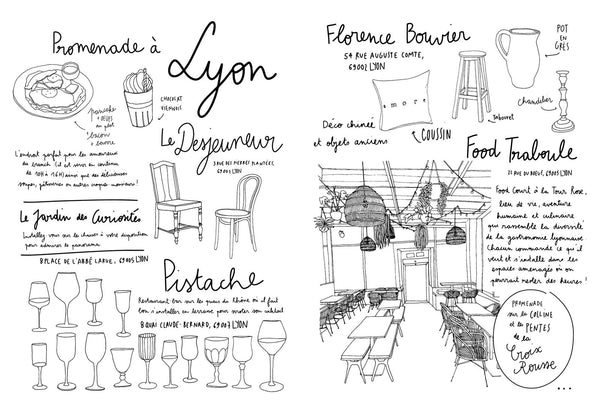 Promenade à
Lyon
pancake
+ œufs
au plat
+
bacon
+ beurre
CHOCOLAT
VIENNOIS
Le Desjeuneur
3 RUE DES PIERRES PLANTÉES,
69001 LYON
L'endroit parfait pour les amoureux
de brunch (il est servi en continu
de 10H à 16H) ainsi que des délicieuses
soupes, pâtisseries ou autres croques-monsieur!
Le Jardin des Curiosités
Installez vous sur les chaises à votre disposition
pour admirer le panorama
8 PLACE DE L'ABBÉ LARUE, 69005 LYON
Pistache
Restaurant bar sur les quais du Rhône où il fait
bon s'installer en terrasse pour siroter son cocktail
8 QUAI CLAUDE-BERNARD, 69007 LYON
Florence Bouvier
54 RUE AUGUSTE COMTE,
69002 LYON
POT
EN
GRÈS
amore
Tabouret
Chandelier
Déco chinée
et objets anciens
COUSSIN
Food Traboule
22 RUE DU BŒUF, 69005 LYON
Food Court à la Tour Rose,
lieu de vie, aventure
humaine et culinaire
qui rassemble la diversité
de la gastronomie lyonnaise
Chacun commande ce qu'il
veut et s'installe dans les
espaces aménagés où on
pourrait rester des heures!
PROMENADE
sur la COLLINE
et les PENTES
de la
Croix
Rousse
...